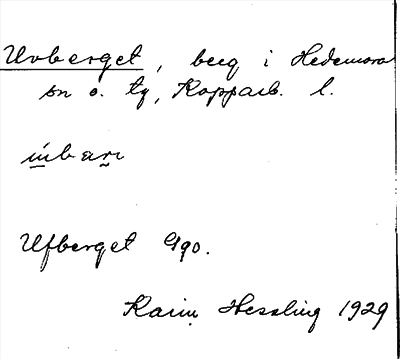 Uvberget, berg i Hedemora
sn o. tg, Kopparb. l.
Ufberget Ggo.
Karin Hessling 1929